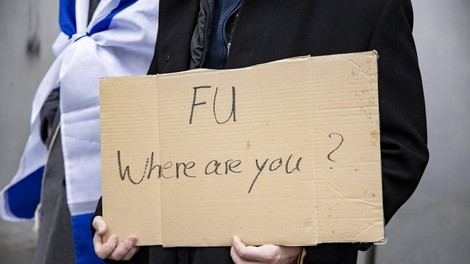 FU
Where are you ?